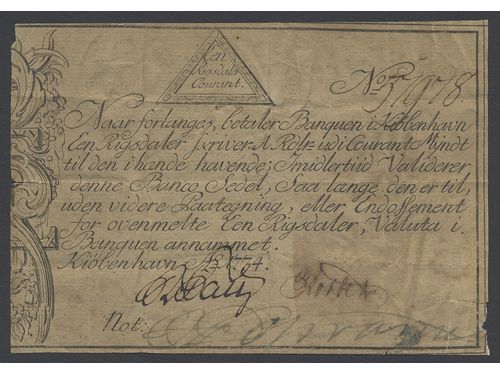 Een
Rigsdaler
Courant.
No
Naar forlanges, betaler Banquen i Kiöbenhavn
Een Rigsdaler, skriver 1. Rdlr. udi Courant Myndt
til den i hænde havende; Imidlertiid Validerer
denne Banco Sedel, Saa længe, den er til,
uden videre Paategning, eller Endossement
for ovenmelte Een Rigsdaler, Valuta i
Banquen annammet.
Kiöbenhavn Ao. 1774.
Not: